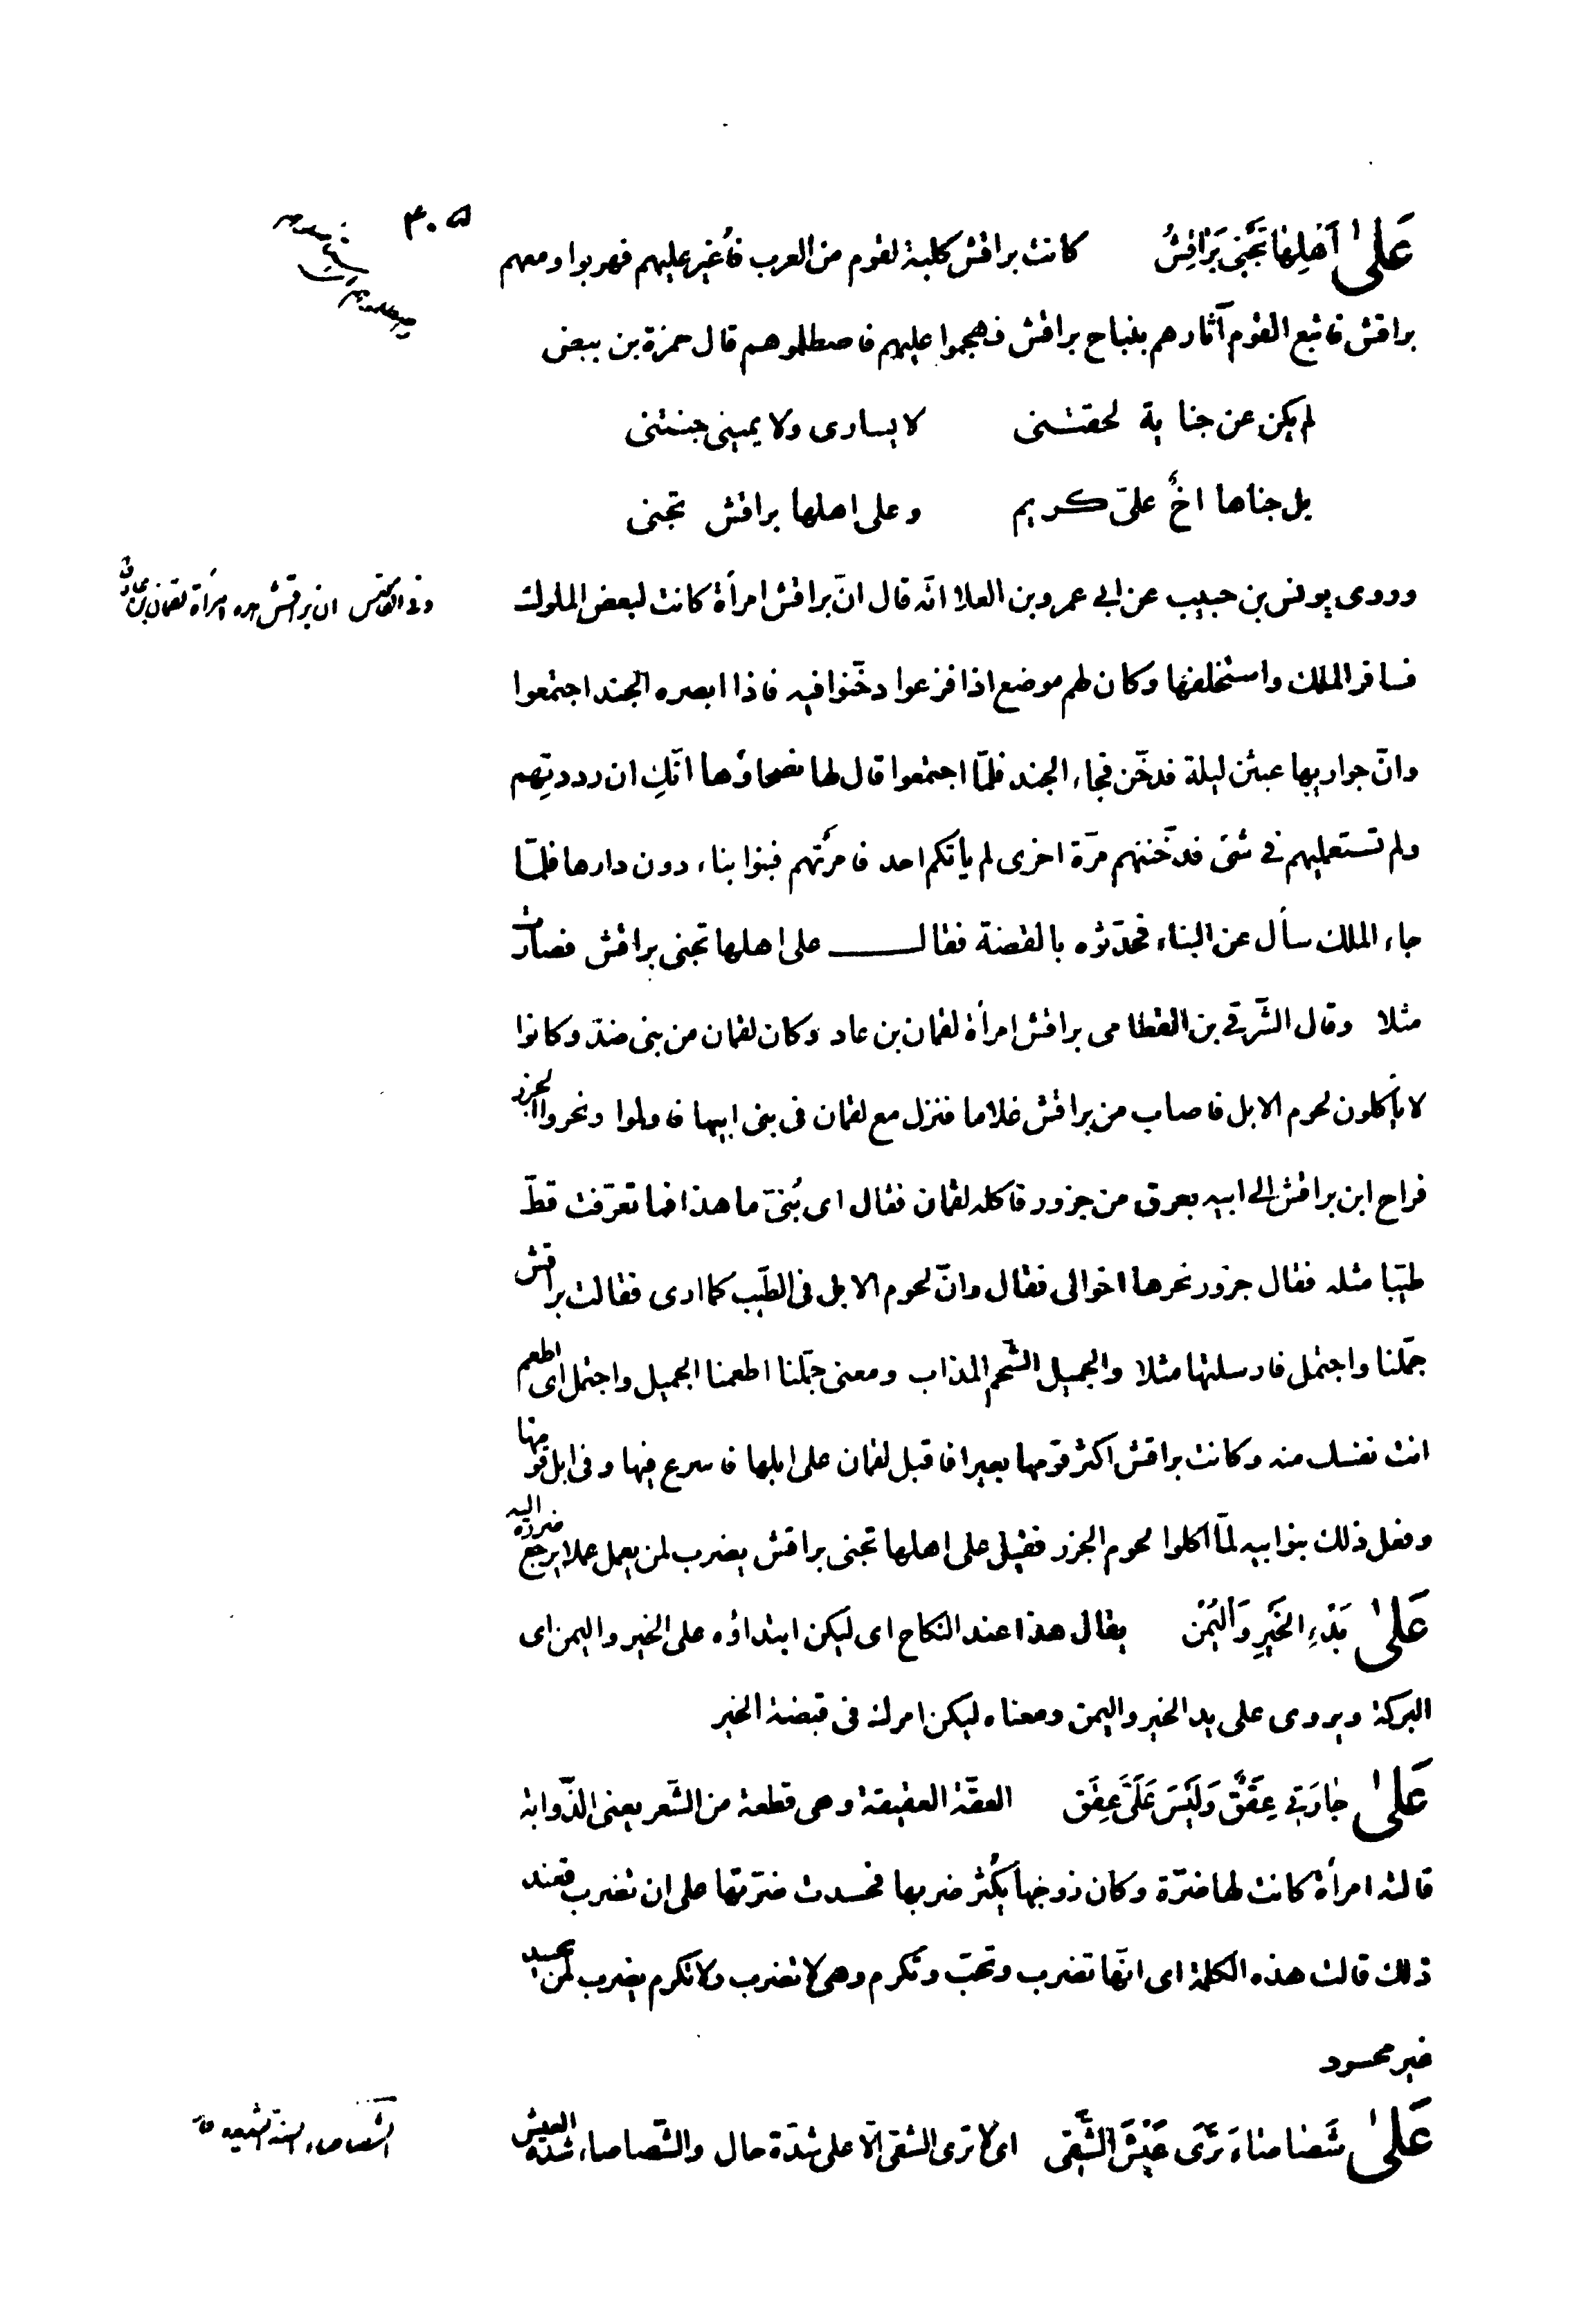 ٤٠٥
عَلىٰ اَهْلِهَا تَجْنِى بَرَاقِشُ كانت براقش كلبة لقوم من العرب فاُغير عليهم فهربوا ومعهم
براقش فاتبع القوم آثارهم بنباح براقش فهجموا عليهم فاصطلموهم قال حمزة بن بيض
لم يكن عن جناية لحقتنى لا يسارى ولا يمينى جنتنى
بل جناها اخٌ علىّ كريم وعلى اهلها براقش تجنى
وروى يونس بن حبيب عن ابى عمرو بن العلا انّه قال انّ براقش امرأة كانت لبعض الملوك
فسافر الملك واستخلفها وكان لهم موضع اذا فزعوا دخّنوا فيه فاذا ابصره الجند اجتمعوا
وانّ جواريها عبثن ليلة فدخّن فجاء الجند فلمّا اجتمعوا قال لها نصحاؤها انّكِ ان رددتِهم
ولم تستعمليهم فى شئ فدخّنتهم مرّة اخرى لم يأتكم احد فامرتهم فبنوا بناء دون دارها فلمّا
جاء الملك سأل عن البناء فحدّثوه بالقصة فقال على اهلها تجنى براقش فصارت
مثلا وقال الشّرقى بن القطامى براقش امرأة لقمان بن عاد وكان لقمان من بنى ضدّ وكانوا
لا يأكلون لحوم الابل فاصاب من براقش غلاما فنزل مع لقمان فى بنى ابيها فاولموا ونحروا الجزر
فراح ابن براقش الى ابيه بعرق من جزور فاكله لقمان فقال اى بُنىّ ما هذا فما تعرّقت قطّ
طيّبا مثله فقال جزور نحرها اخوالى فقال وانّ لحوم الابل فى الطّيب كما ارى فقالت براقش
جمّلنا واجتمل فارسلتها مثلا والجميل الشّحم المذاب ومعنى جمّلنا اطعمنا الجميل واجتمل اى اطعم
انت نفسك منه وكانت براقش اكثر قومها بعيرا فاقبل لقمان على ابلها فاسرع فيها وفى ابل قومها
وفعل ذلك بنو ابيه لمّا اكلوا لحوم الجزر فقيل على اهلها تجنى براقش يضرب لمن يعمل عملا يرجع ضرره اليه
عَلىٰ بَدْءِ الخَيْرِ وَاليُمْن يقال هذا عند النكاح اى ليكن ابتداؤه على الخير واليمن اى
البركة ويروى على يد الخير واليمن ومعناه ليكن امرك فى قبضة الخير
عَلىٰ جَارَتِى عِقَقٌ وَلَيْسَ عَلَىَّ عِقَق العقّة العقيقة وهى قطعة من الشّعر يعنى الذّوابة
قالته امرأة كانت لها ضرّة وكان زوجها يكثر ضربها فحسدت ضرّتها على ان تضرب فعند
ذلك قالت هذه الكلمة اى انّها تضرب وتحبّ وتكرم وهى لا تضرب ولا تكرم يضرب لمن يحسد
غير محسود
عَلىٰ شَصَاصَاءَ تَرَى عَيْشَ الشَّقِى اى لا ترى الشقى الّا على شدّة حال والشّصاصاء شدّة العيش
وفى القاموس ان براقش امرأة لقمان بن عاد
الشصاصاء السنة الشديدة